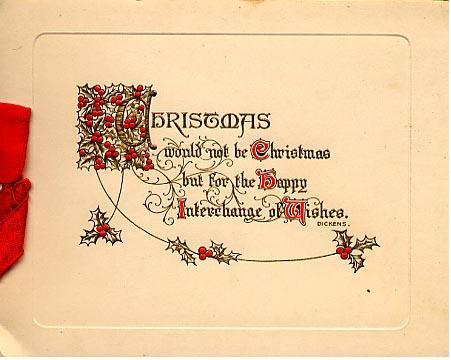 CHRISTMAS
would not be Christmas
but for the Happy
Interchange of Wishes.
DICKENS.